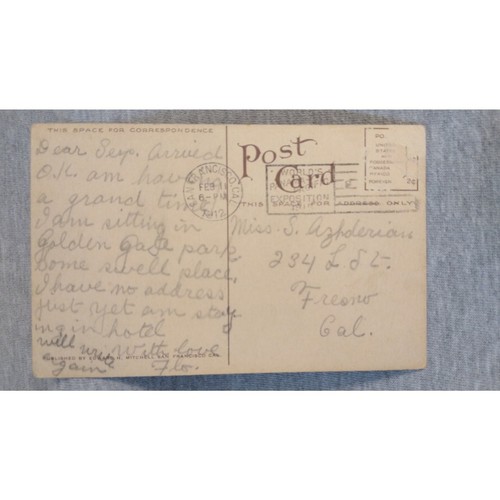 THIS SPACE FOR CORRESPONDENCE
Dear Serp. Arrived
O.K. am have
a grand time
I am sitting in
Golden Gate park
Some swell place.
I have no address
just yet am stay
ing in hotel
will
With love
Flo.
PUBLISHED BY
Post
Card
THIS SPACE FOR ADDRESS ONLY
SAN FRANCISCO, CAL.
FEB
6-PM
1912
WORLD'S
EXPOSITION
Miss. S. Azhderian
234 L. St.
Fresno
Cal.